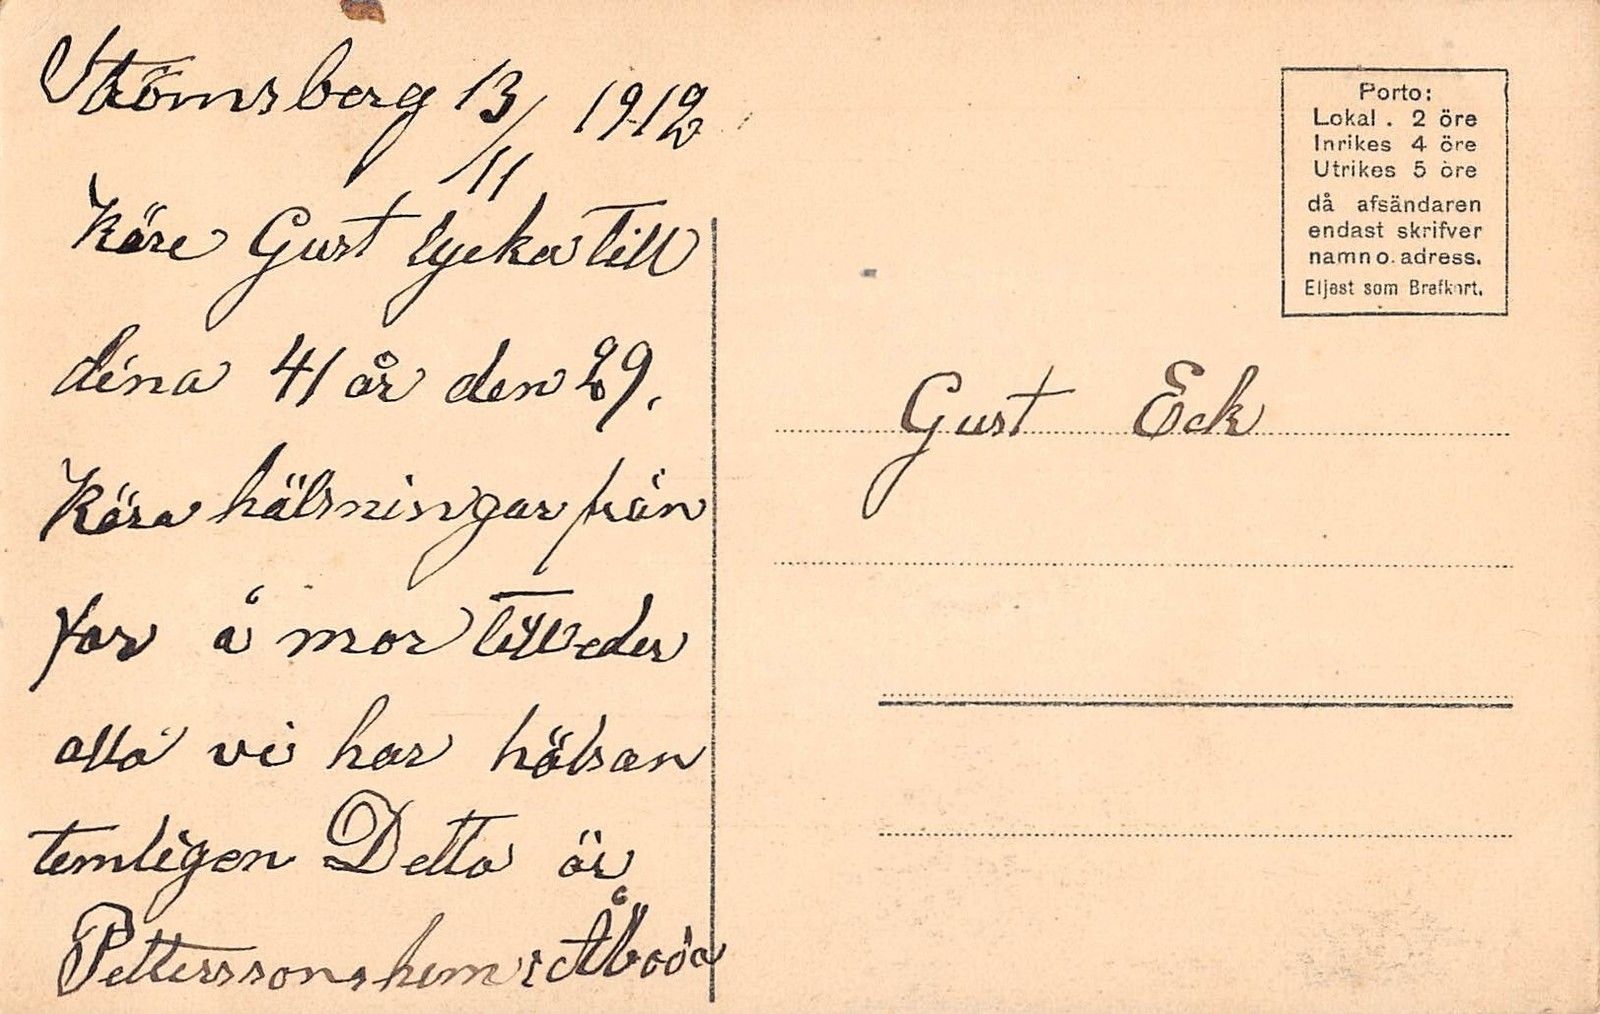 Strömsberg 13/11 1912
Käre Gust lycka till
dina 41 år den 29.
Kära hälsningar från
far å mor till eder
alla vi har hälsan
temligen Detta är
Petterssons hem i Åboda
Porto:
Lokal . 2 öre
Inrikes 4 öre
Utrikes 5 öre
då afsändaren
endast skrifver
namn o. adress.
Eljest som Brefkort.
Gust Eck